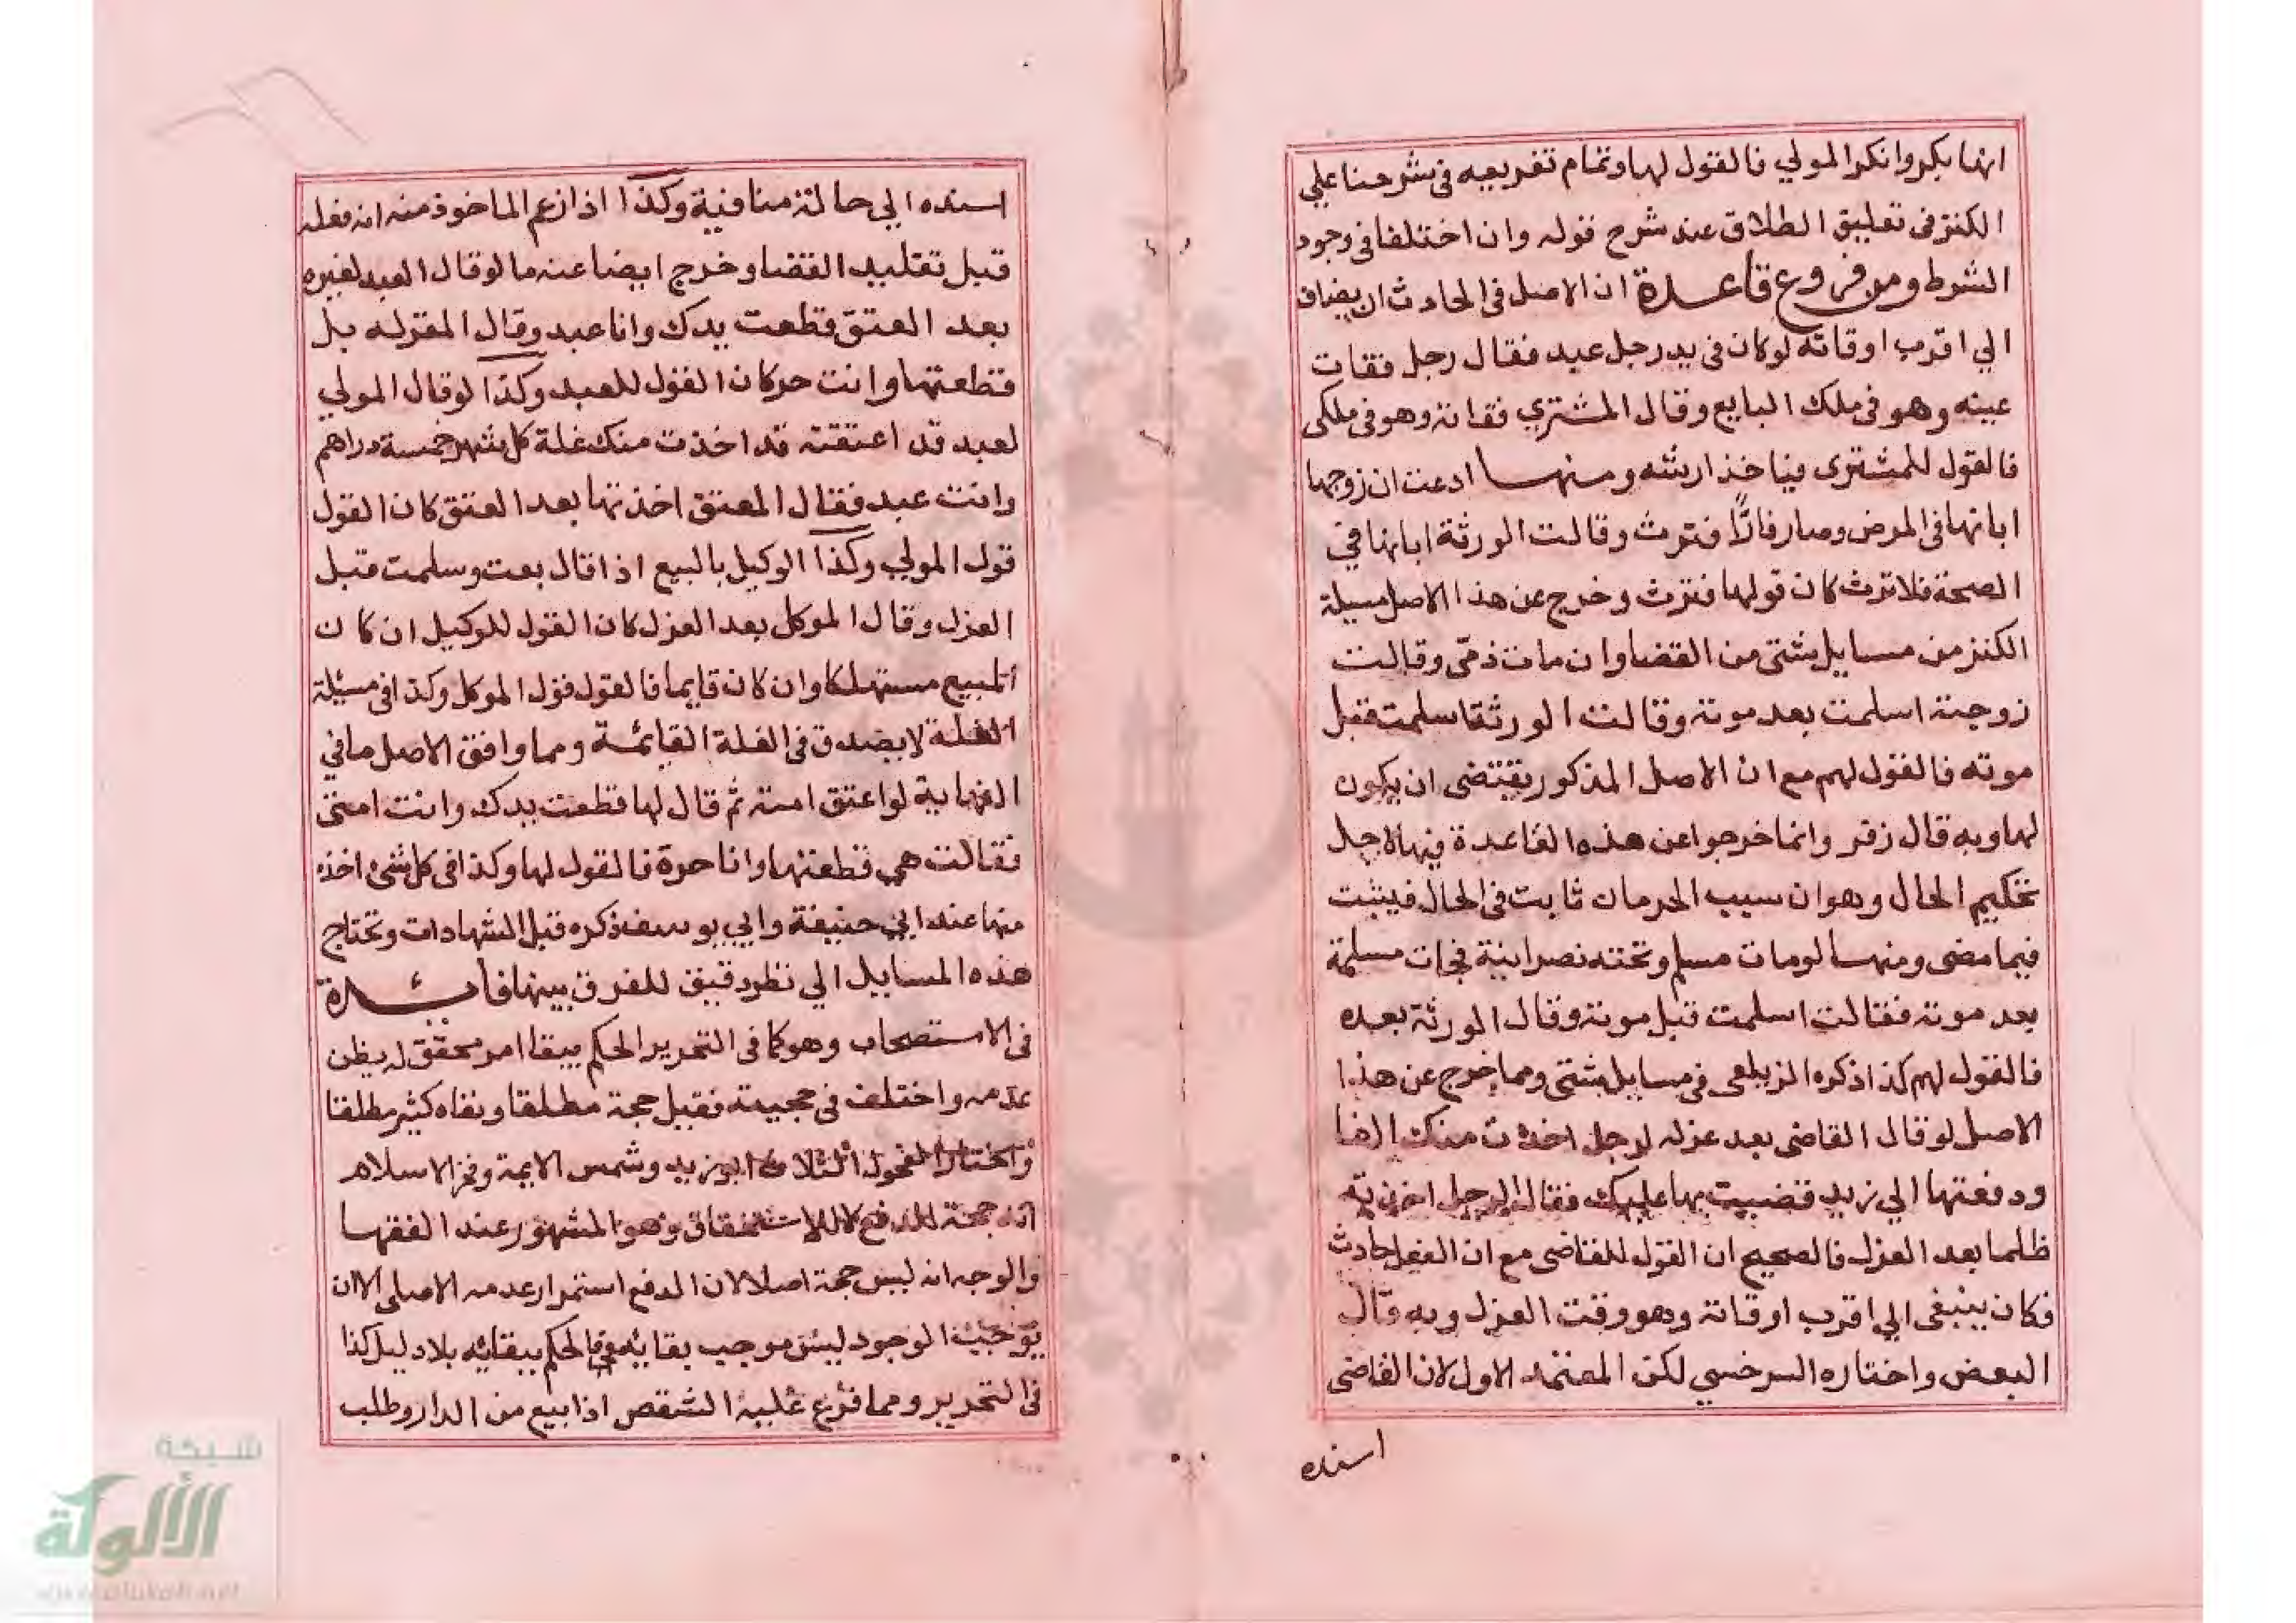 انها بكر وانكر المولي فالقول لها وتمام تفريعه فى شرحنا علي
الكنز فى تعليق الطلاق عند شرح قوله وان اختلفا فى وجود
الشرط ومن فروع قاعدة ان الاصل فى الحادث ان يضاف
الي اقرب اوقاته لو كان فى يد رجل عبد فقال رجل فقات
عينه وهو فى ملك البايع وقال المشتري فقاته وهو فى ملكى
فالقول للمشترى فياخذ ارشه ومنها ادعت ان زوجها
ابانها فى المرض وصار فارًّا فترث وقالت الورثة ابانها في
الصحة فلا ترث كان قولها فترث وخرج عن هذا الاصل مسيلة
الكنز من مسايل شتى من القضا وان مات ذمّى وقالت
زوجته اسلمت بعد موته وقالت الورثة اسلمت قبل
موته فالقول لهم مع ان الاصل المذكور يقتضى ان يكون
لها وبه قال زفر وانما خرجوا عن هذه القاعدة فيها لاجل
تحكيم الحال وهو ان سبب الحرمان ثابت فى الحال فيثبت
فيما مضى ومنها لو مات مسلم وتحته نصرانية فجات مسلمة
بعد موته فقالت اسلمت قبل موته وقال الورثة بعده
فالقول لهم كذا ذكره الزيلعى فى مسايل شتى ومما خرج عن هذا
الاصل لو قال القاضى بعد عزله لرجل اخذت منك الفا
ودفعتها الي زيد قضيت بها عليك فقال الرجل اخذته
ظلما بعد العزل فالصحيح ان القول للقاضى مع ان الفعل حادث
فكان ينبغى الي اقرب اوقاته وهو وقت العزل وبه قال
البعض واختاره السرخسي لكن المعتمد الاول لان القاضى
اسنده
اسنده الي حالة منافية وكذا اذا زعم الماخوذ منه انه فعله
قبل تقليد القضا وخرج ايضا عنه ما لو قال العبد لغيره
بعد العتق قطعت يدك وانا عبد وقال المقر له بل
قطعتها وانت حر كان القول للعبد وكذا لو قال المولي
لعبد قد اعتقته قد اخذت منك غلة كل شهر خمسة دراهم
وانت عبد فقال المعتق اخذتها بعد العتق كان القول
قول المولي وكذا الوكيل بالبيع اذا قال بعت وسلمت قبل
العزل وقال الموكل بعد العزل كان القول للوكيل ان كان
المبيع مستهلكا وان كان قايما فالقول قول الموكل وكذا فى مسئلة
الغلة لا يصدق فى الغلة القائمة ومما وافق الاصل ما في
النهاية لو اعتق امته ثم قال لها قطعت يدك وانت امتى
فقالت هي قطعتها وانا حرة فالقول لها وكذا فى كل شئ اخذه
منها عند ابي حنيفة وابي يوسف ذكره قبل الشهادات وتحتاج
هذه المسايل الي نظر دقيق للفرق بينها فائدة
فى الاستصحاب وهو كما فى التحرير الحكم ببقا امر محقق لم يظن
عدمه واختلف فى حجيته فقيل حجة مطلقا ونفاه كثير مطلقا
واختار الفحول الثلاثة ابو زيد وشمس الايمة وفخر الاسلام
انه حجة للدفع لا للاستحقاق وهو المشهور عند الفقها
والوجه انه ليس حجة اصلا لان الدفع استمرار عدمه الاصلى لان
موجب الوجود ليس موجب بقائه فالحكم ببقائه بلا دليل كذا
فى التحرير ومما فرع عليه الشقص اذا بيع من الدار وطلب
شبكة
الألوكة
www.alukah.net